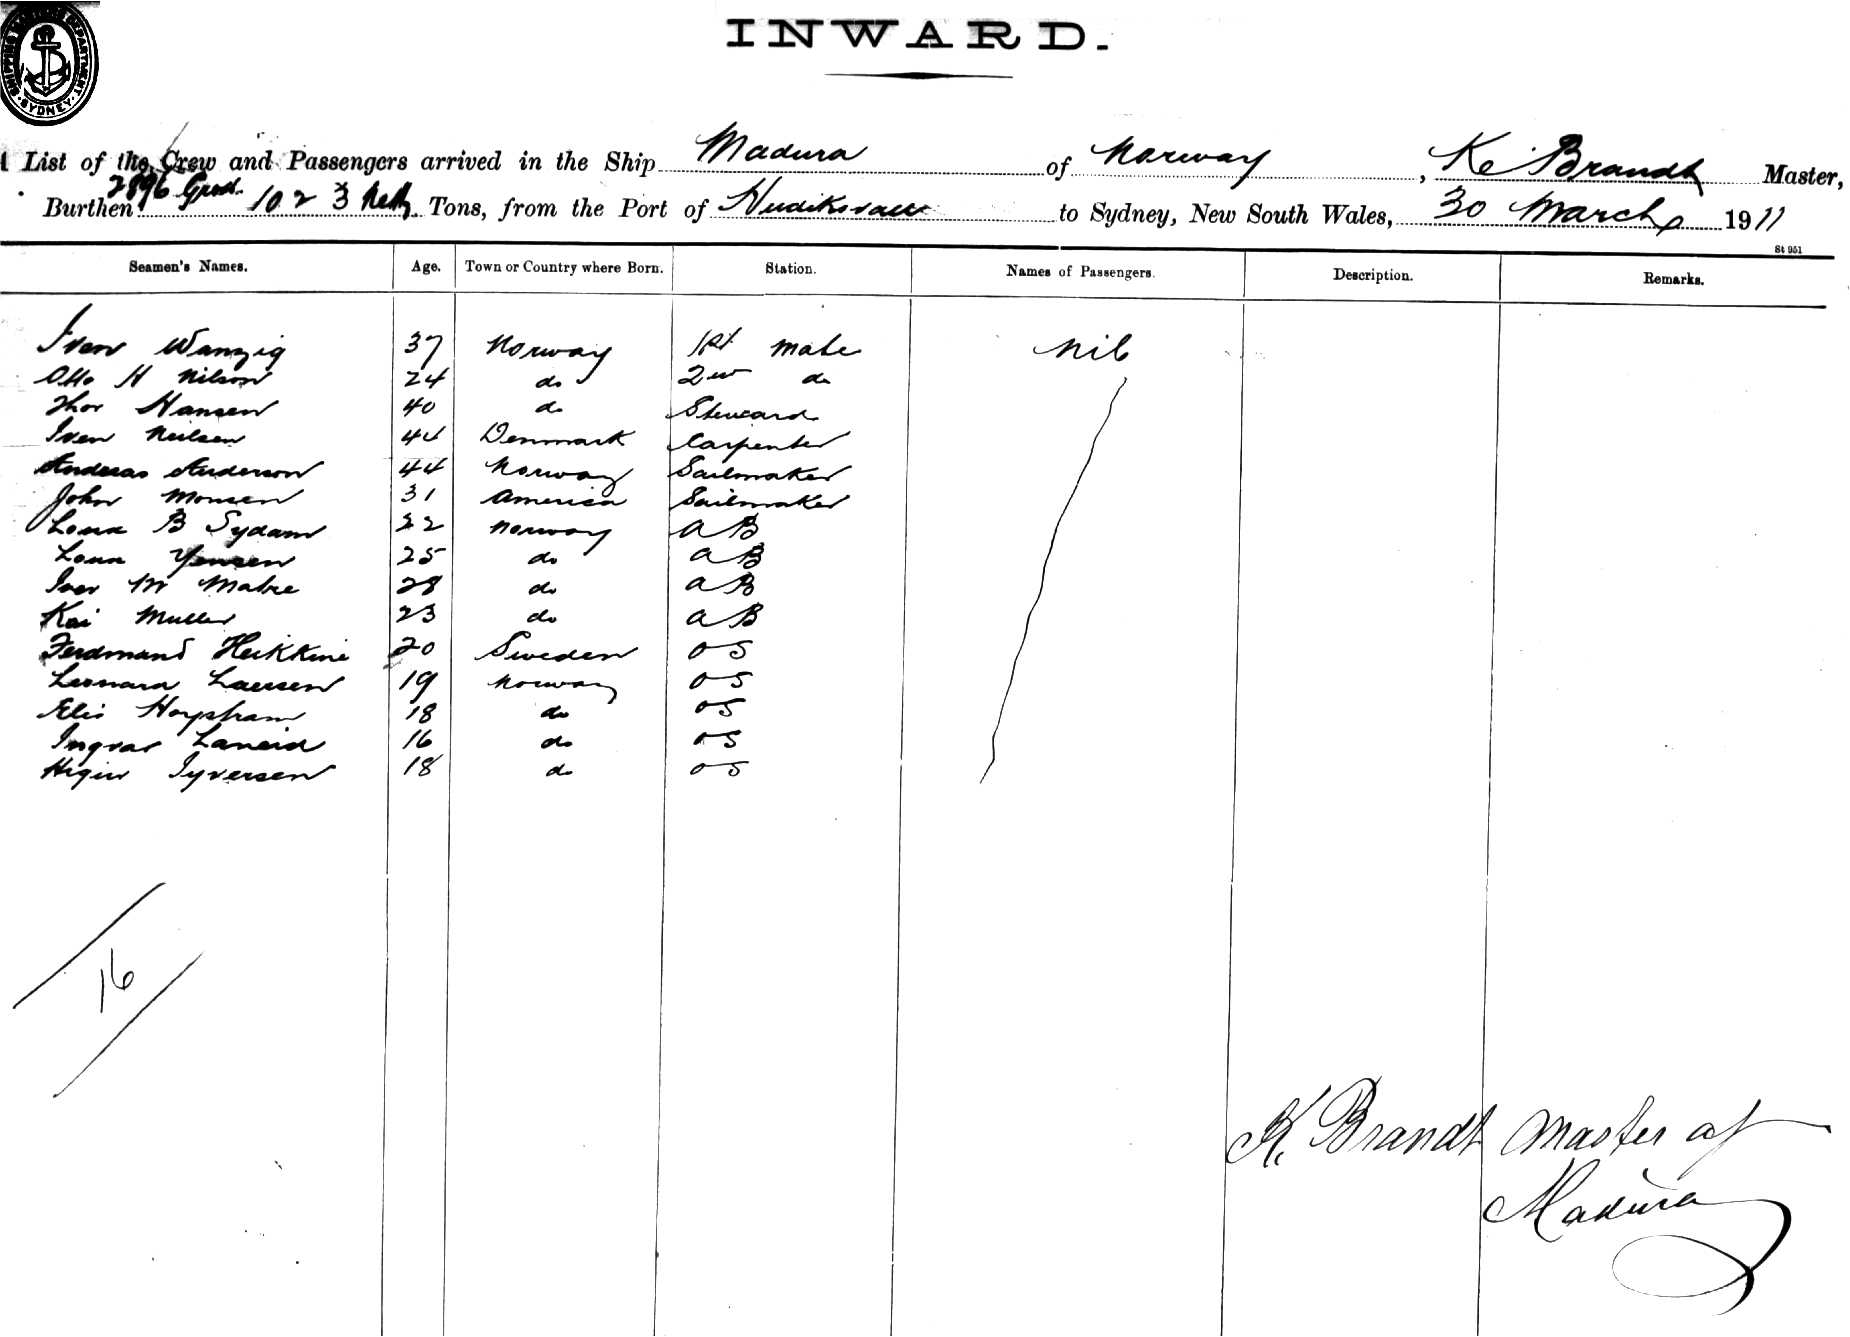 SHIPPING MASTERS DEPARTMENT SYDNEY
INWARD.
List of the Crew and Passengers arrived in the Ship Madura of Norway, K Brandt Master,
Burthen 1023 Nett Tons, from the Port of Hudiksvall to Sydney, New South Wales, 30 March 1911
St 951
Seamen's Names. Age. Town or Country where Born. Station. Names of Passengers. Description. Remarks.
Iven Wanzig 37 Norway 1st mate Nil
Otto H Nilson 24 do 2nd do
Thor Hansen 40 do Steward
Iven Neilsen 44 Denmark Carpenter
Andreas Anderson 44 Norway Sailmaker
John Monsen 31 America Sailmaker
B Sydam 22 Norway AB
Yensen 25 do AB
Iver M Matre 28 do AB
Kai Muller 23 do AB
Ferdinand Heikkine 20 Sweden OS
Leonard Laursen 19 Norway OS
Elis 18 do OS
Ingvar 16 do OS
Iyversen 18 do OS
16
K. Brandt Master of
Madura